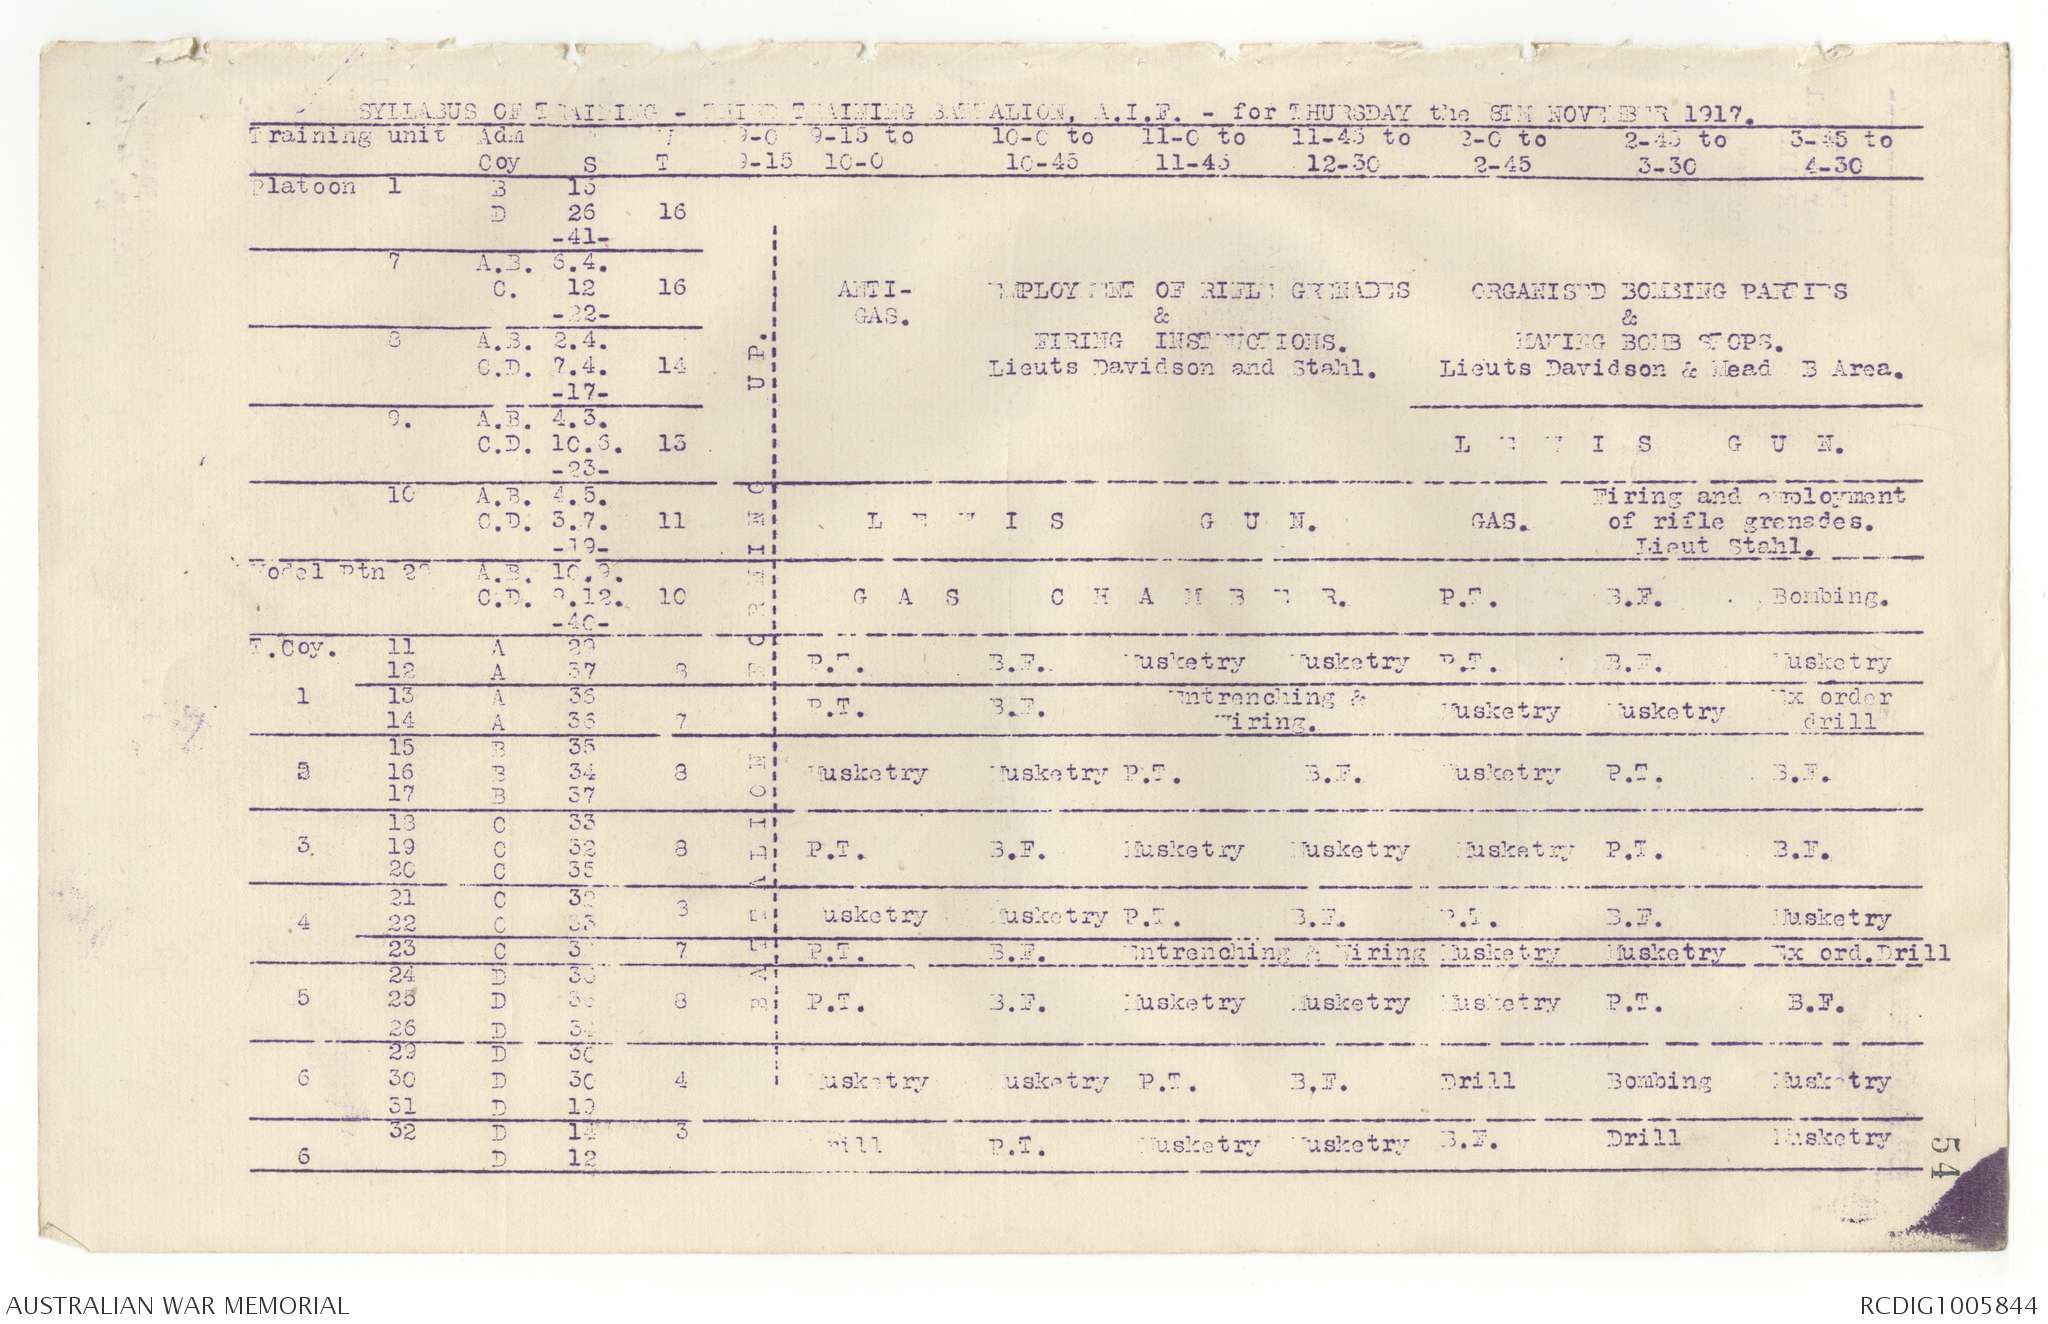 SYLLABUS OF TRAINING - THIRD TRAINING BATTALION, A.I.F. - for THURSDAY the 8TH NOVEMBER 1917.
Training unit Adm 9-0 9-15 to 10-0 to 11-0 to 11-45 to 2-0 to 2-45 to 3-45 to
Coy S T 9-15 10-0 10-45 11-45 12-30 2-45 3-30 4-30
Platoon 1 B 15
D 26 16
-41-
7 A.B. 6.4.
C. 12 16 ANTI- EMPLOYMENT OF RIFLE GRENADES ORGANISED BOMBING PARTIES
-22- GAS. & &
8 A.B. 2.4. FIRING INSTRUCTIONS. MAKING BOMB STOPS.
C.D. 7.4. 14 Lieuts Davidson and Stahl. Lieuts Davidson & Mead B Area.
-17-
9. A.B. 4.3.
C.D. 10.6. 13 L E W I S G U N.
-23-
10 A.B. 4.5. Firing and employment
C.D. 3.7. 11 L E W I S G U N. GAS. of rifle grenades.
-19- Lieut Stahl.
Model Ptn A.B. 10.9.
C.D. 9.12. 10 G A S C H A M B E R. P.T. B.F. Bombing.
-40-
T.Coy. 11 A 29
12 A 37 8 P.T. B.F. Musketry Musketry P.T. B.F. Musketry
1 13 A 36 Entrenching & Ex order
14 A 36 7 P.T. B.F. Wiring. Musketry Musketry drill
15 B 35
2 16 B 34 8 Musketry Musketry P.T. B.F. Musketry P.T. B.F.
17 B 37
18 C 33
3 19 C 32 8 P.T. B.F. Musketry Musketry Musketry P.T. B.F.
20 C 35
21 C 32
4 22 C 33 8 Musketry Musketry P.T. B.F. P.T. B.F. Musketry
23 C 7 P.T. B.F. Entrenching & Wiring Musketry Musketry Ex ord.Drill
24 D
5 25 D 8 P.T. B.F. Musketry Musketry Musketry P.T. B.F.
26 D
29 D 30
6 30 D 30 4 Musketry Musketry P.T. B.F. Drill Bombing Musketry
31 D 19
32 D 14 3 Drill P.T. Musketry Musketry B.F. Drill Musketry
6 D 12
BATTALION SCREENING UP.
54
AUSTRALIAN WAR MEMORIAL RCDIG1005844